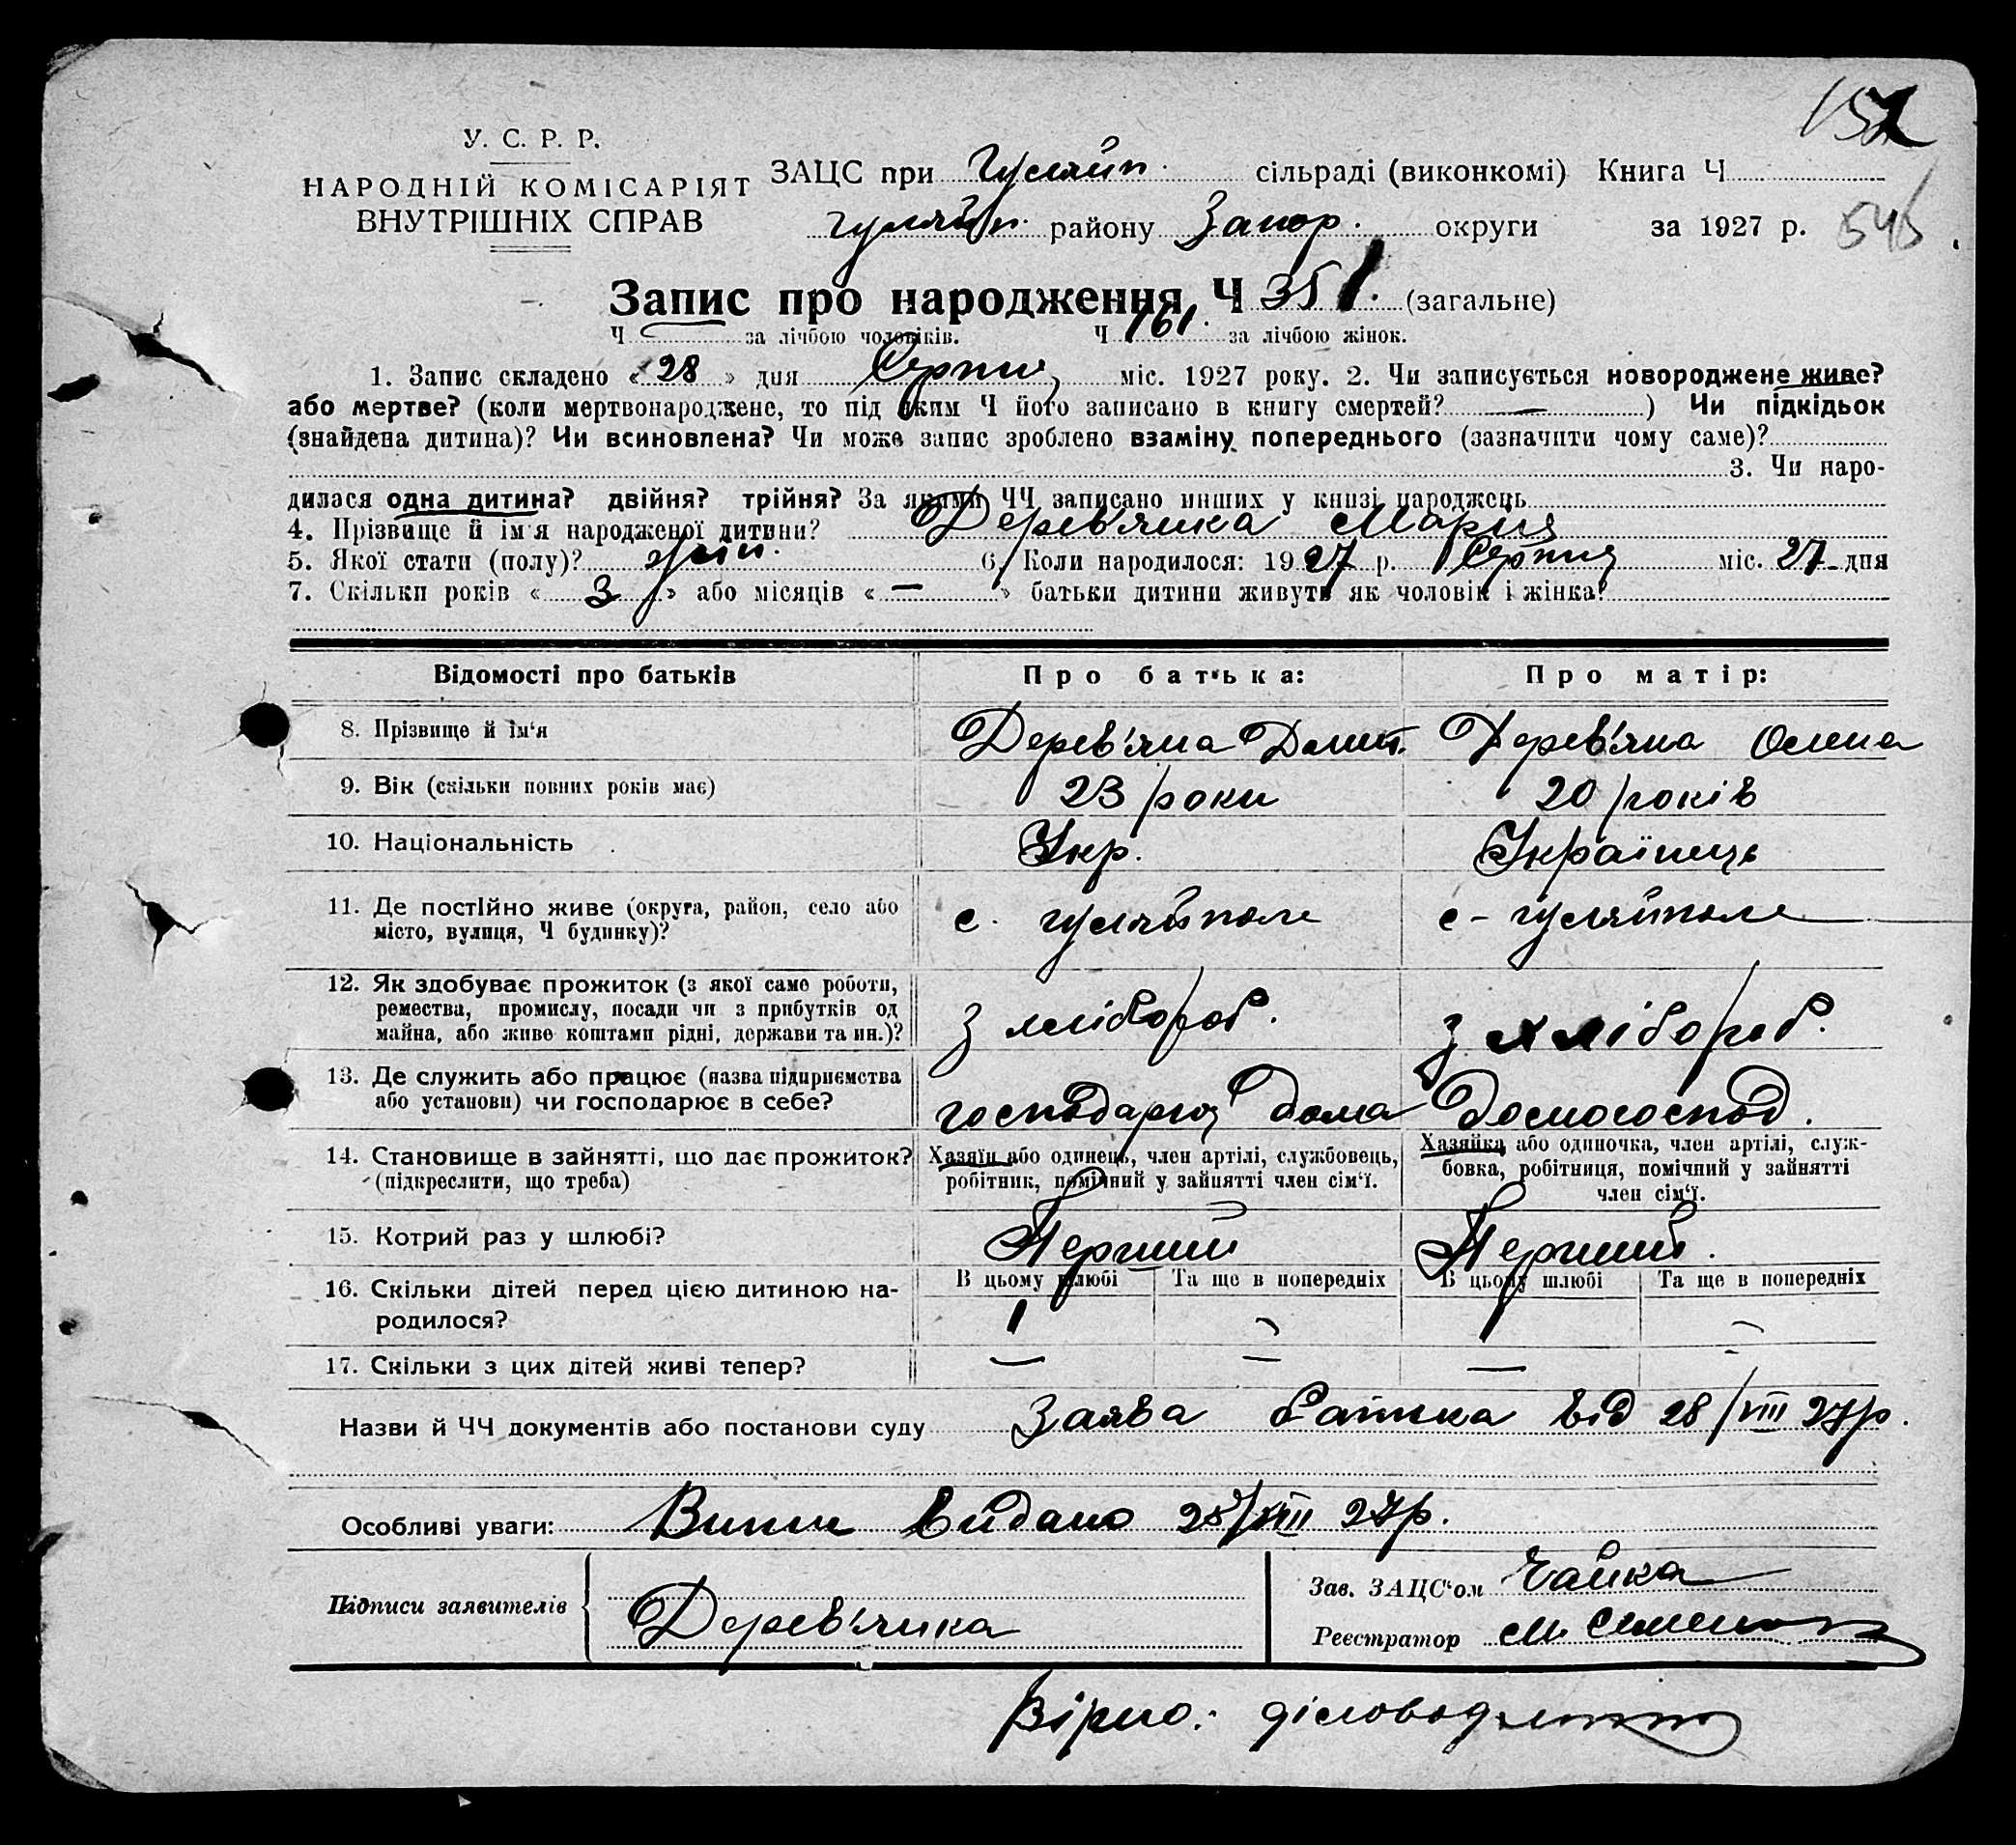 У. С. Р. Р.
НАРОДНІЙ КОМІСАРІЯТ
ВНУТРІШНІХ СПРАВ
ЗАЦС при Гуляйп. сільраді (виконкомі) Книга Ч
Гуляйп. району Запор. округи за 1927 р.
Запис про народження Ч 351. (загальне)
Ч — за лічбою чоловіків. Ч 161. за лічбою жінок.
1. Запис складено «28» дня Серпня міс. 1927 року. 2. Чи записується новороджене живе?
або мертве? (коли мертвонароджене, то під яким Ч його записано в книгу смертей? — ) Чи підкідьок
(знайдена дитина)? Чи всиновлена? Чи може запис зроблено взаміну попереднього (зазначити чому саме)?
3. Чи наро-
дилася одна дитина? двійня? трійня? За якими ЧЧ записано инших у книзі народжець
4. Прізвище й ім'я народженої дитини? Дерев'янка Мария
5. Якої стати (полу)? жін. 6. Коли народилося: 1927 р. Серпня міс. 27 дня
7. Скільки років «3» або місяців «—» батьки дитини живуть як чоловік і жінка?
Відомості про батьків Про батька: Про матір:
8. Прізвище й ім'я Дерев'яна Дерев'яна Олена
9. Вік (скільки повних років має) 23 роки 20 років
10. Національність Укр. Українець
11. Де постійно живе (округа, район, село або
місто, вулиця, Ч будинку)? с. Гуляйполе с - Гуляйполе
12. Як здобуває прожиток (з якої саме роботи,
ремества, промислу, посади чи з прибутків од
майна, або живе коштами рідні, держави та ин.)? З хлібороб. з хлібороб.
13. Де служить або працює (назва підприємства
або установи) чи господарює в себе? господарює дома Домогоспод.
14. Становище в зайнятті, що дає прожиток?
(підкреслити, що треба)
Хазяїн або одинець, член артілі, службовець,
робітник, помічний у зайнятті член сім'ї.
Хазяйка або одиночка, член артілі, служ-
бовка, робітниця, помічний у зайнятті
член сім'ї.
15. Котрий раз у шлюбі? Перший Перший.
16. Скільки дітей перед цією дитиною на-
родилося?
В цьому шлюбі Та ще в попередніх В цьому шлюбі Та ще в попередніх
1 — 1 —
17. Скільки з цих дітей живі тепер? — — — —
Назви й ЧЧ документів або постанови суду Заява батька від 28/VIII 27р.
Особливі уваги: Випис видано 28/VIII 27р.
Підписи заявителів Дерев'янка
Зав. ЗАЦС'ом Чайка
Реєстратор
Вірно: діловод